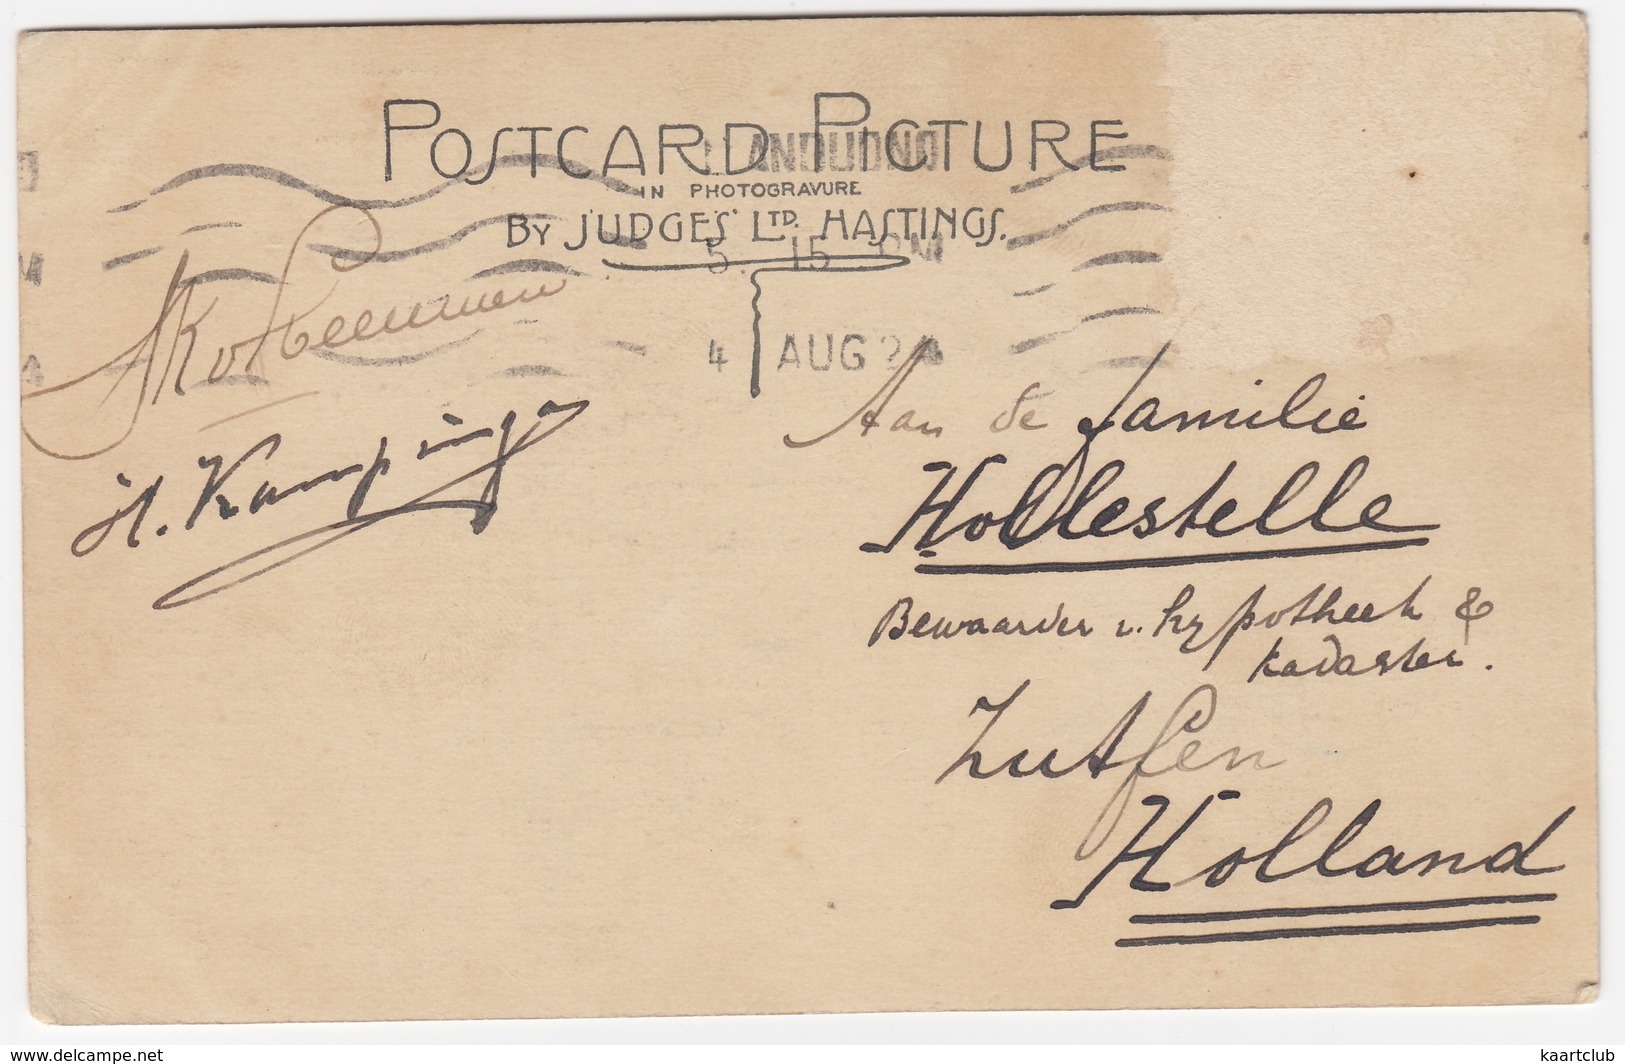 POSTCARD PICTURE
IN PHOTOGRAVURE
BY JUDGES' LTD. HASTINGS.
LLANDUDNO
5 15 PM
4 AUG
H. Kamping
Aan de familie
Hollestelle
Bewaarder v. hypotheek &
kadaster.
Zutfen
Holland
www.delcampe.net
kaartclub